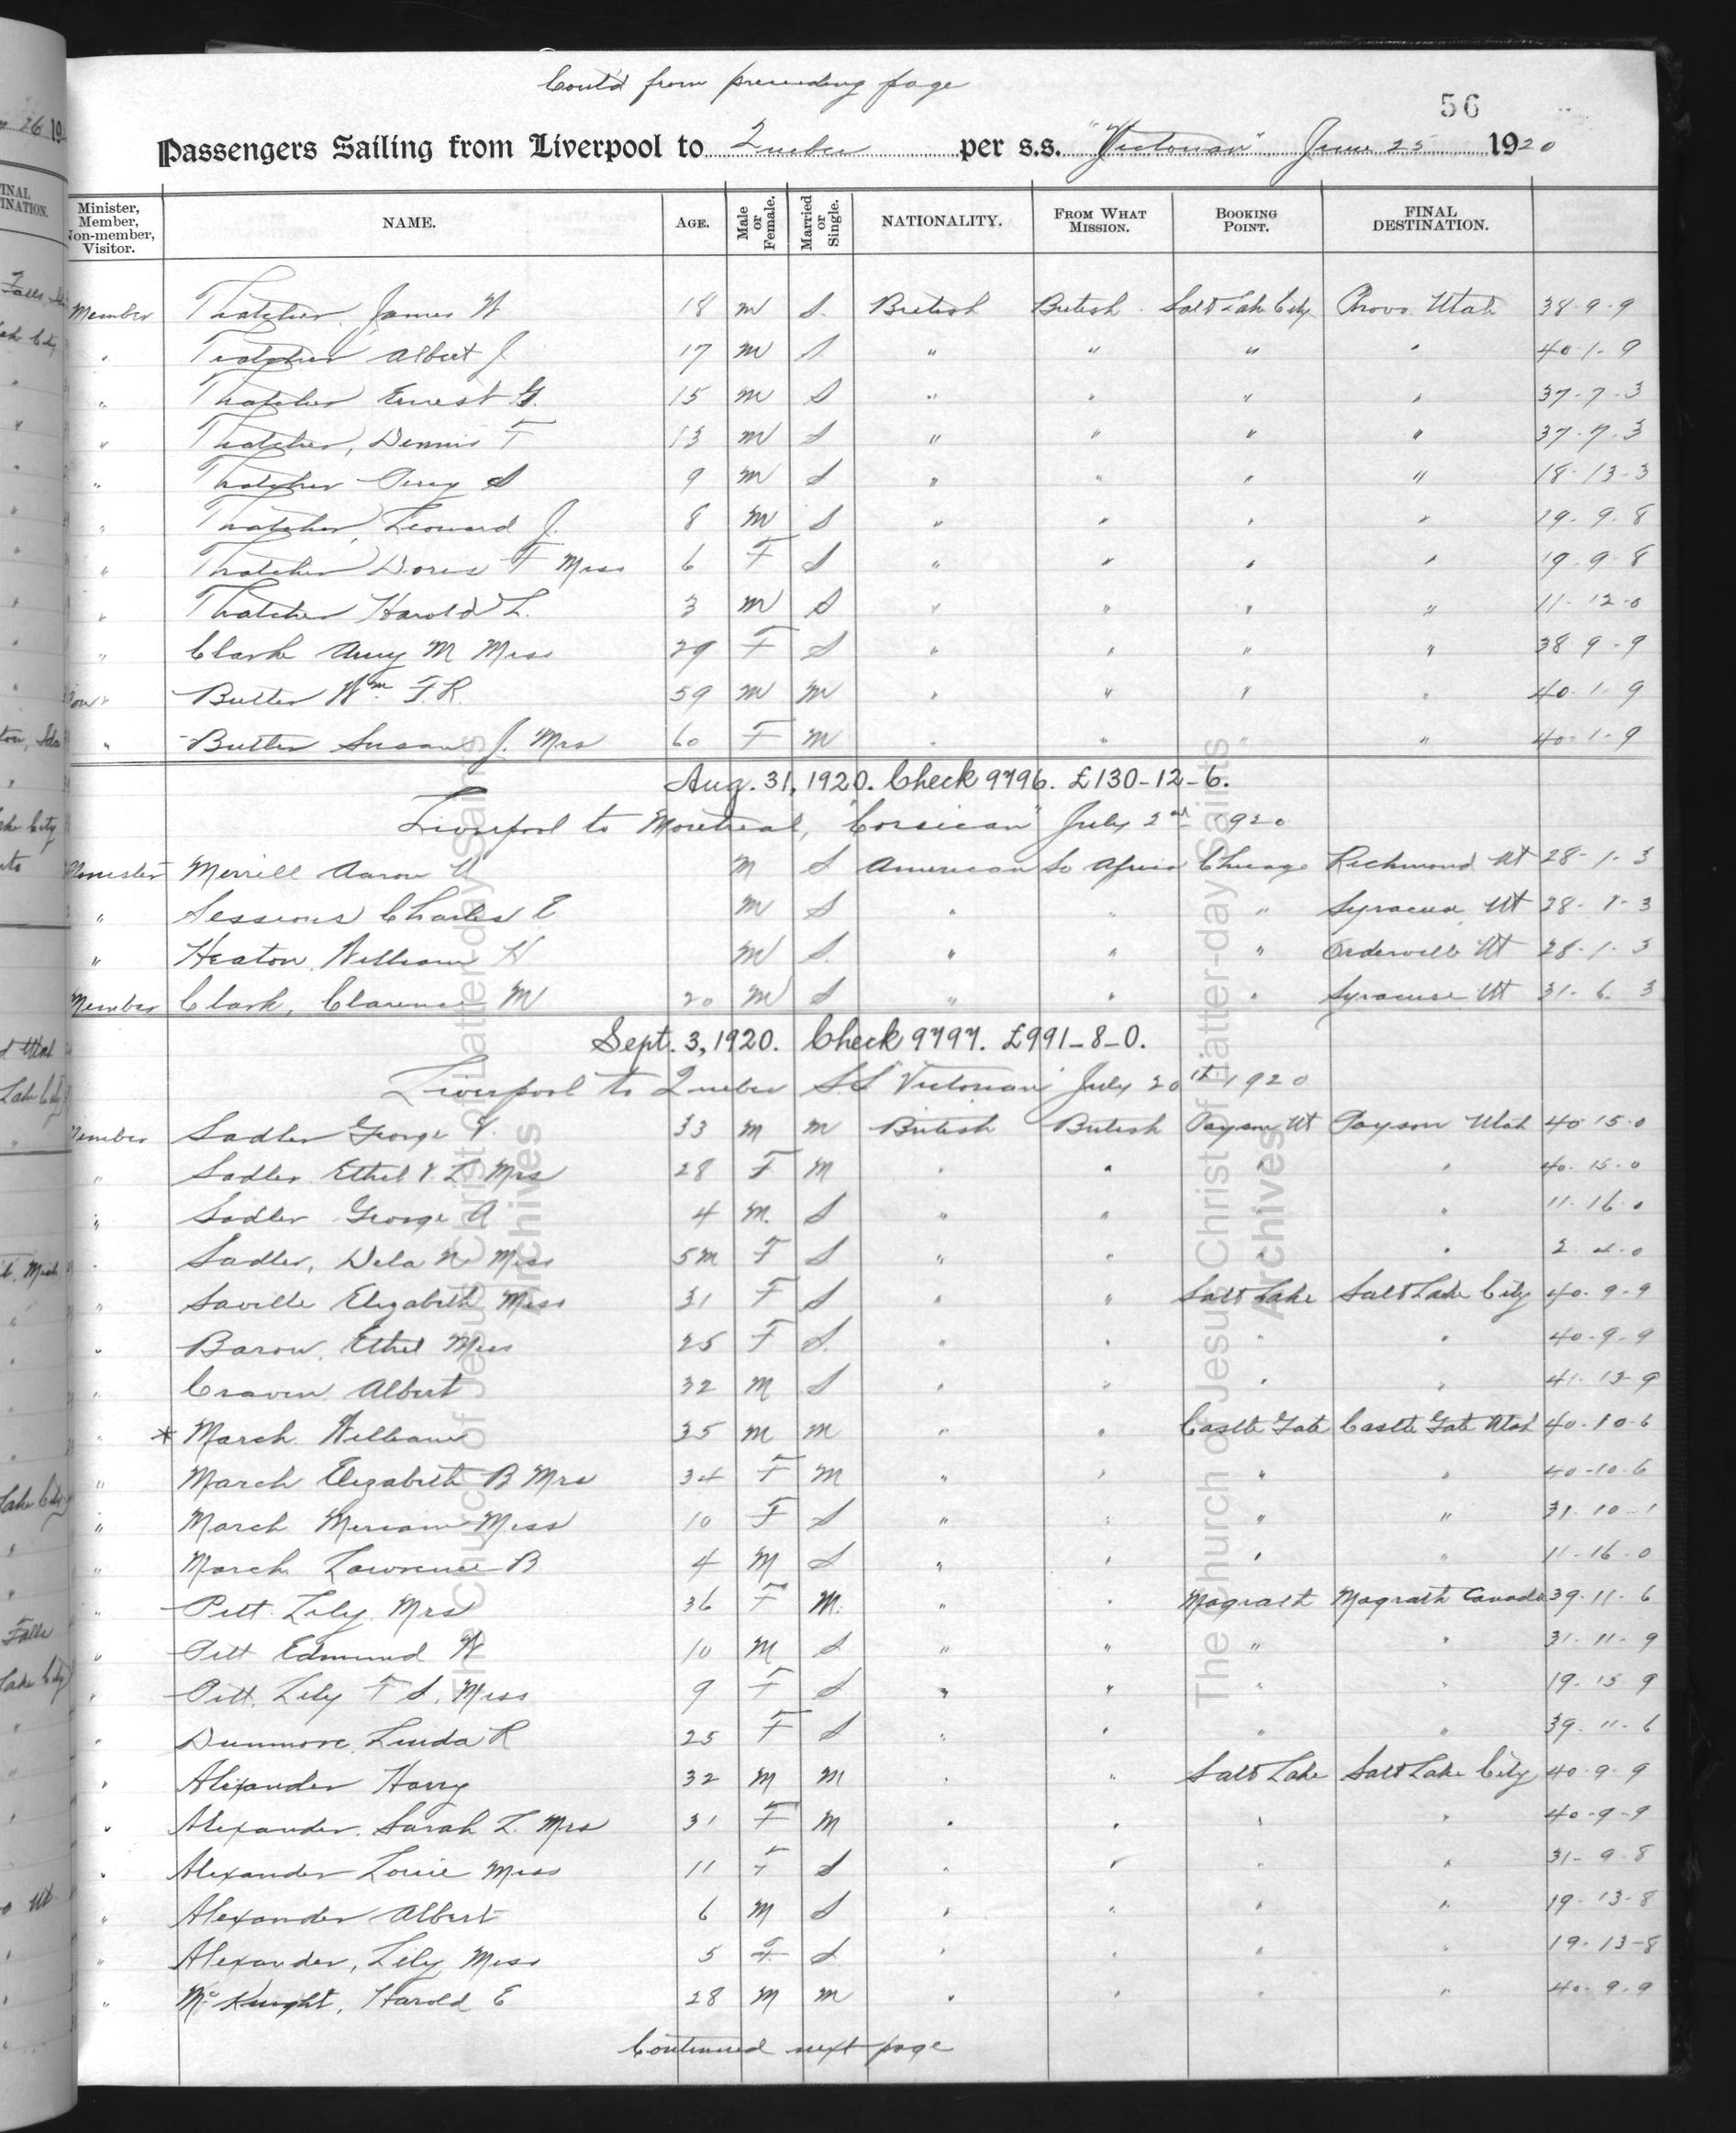 Cont'd from preceeding page
56
Passengers Sailing from Liverpool to Quebec per s.s. "Victorian" June 25 1920
Minister, Member, Non-member, Visitor. NAME. AGE. Male or Female. Married or Single. NATIONALITY. FROM WHAT MISSION. BOOKING POINT. FINAL DESTINATION.
Member Thatcher, James W 18 M S. British British Salt Lake City Provo Utah 38-9-9
" Thatcher Albert J 17 M S. " " " " 40-1-9
" Thatcher Ernest G. 15 M S " " " " 37-7-3
" Thatcher, Dennis F 13 M S " " " " 37-7-3
" Thatcher Percy S 9 M S " " " " 18-13-3
" Thatcher, Leonard J. 8 M S " " " " 19-9-8
" Thatcher Doris F Miss 6 F S " " " " 19-9-8
" Thatcher Harold L. 3 M S " " " " 11-12-0
" Clark Amy M Miss 29 F S " " " " 38-9-9
Non " Butler Wm F.R. 59 M M " " " " 40-1-9
" Butler Susan J. Mrs 60 F M " " " " 40-1-9
Aug. 31, 1920. Check 9796. £130-12-6.
Liverpool to Montreal, "Corsican" July 2nd 1920
Minister Merrill Aaron U M S American So Africa Chicago Richmond Ut 28-1-3
" Sessions Charles E M S " " " Syracuse, Ut 28-1-3
" Heaton, William H M S. " " " Orderville Ut 28-1-3
Member Clark, Clarence W 20 M S " " " Syracuse Ut 31-6-3
Sept. 3, 1920. Check 9797. £991-8-0.
Liverpool to Quebec S.S "Victorian" July 20th 1920
Member Sadler George V. 33 M M British British Payson Ut Payson Utah 40-15-0
" Sadler Ethel V. L Mrs 28 F M " " " " 40-15-0
" Sadler George A 4 M. S " " " " 11-16-0
" Sadler, Dela N Miss 5M F S " " " " 2-4-0
" Saville Elizabeth Miss 31 F S " " Salt Lake Salt Lake City 40-9-9
" Baron, Ethel Miss 25 F S. " " " " 40-9-9
" Craven Albert 32 M S " " " " 41-12-9
" * March William 35 M M " " Castle Gate Castle Gate Utah 40-10-6
" March Elizabeth B Mrs 34 F M " " " " 40-10-6
" March Meriam Miss 10 F S " " " " 31-10-1
" March Lawrence B 4 M S " " " " 11-16-0
" Pitt Lily Mrs 36 F M. " " Magrath Magrath Canada 39-11-6
" Pitt Edmund W 10 M S " " " " 31-11-9
" Pitt, Lily F S, Miss 9 F S " " " " 19-15-9
" Dunmore, Linda R 25 F S " " " " 39-11-6
" Alexander Harry 32 M M " " Salt Lake Salt Lake City 40-9-9
" Alexander. Sarah L. Mrs 31 F M " " " " 40-9-9
" Alexander Louie Miss 11 F S " " " " 31-9-8
" Alexander Albert 6 M S " " " " 19-13-8
" Alexander, Lily Miss 5 F S " " " " 19-13-8
" McKnight, Harold E 28 M M " " " " 40-9-9
Continued next page
The Church of Jesus Christ of Latter-day Saints
Archives
The Church of Jesus Christ of Latter-day Saints
Archives